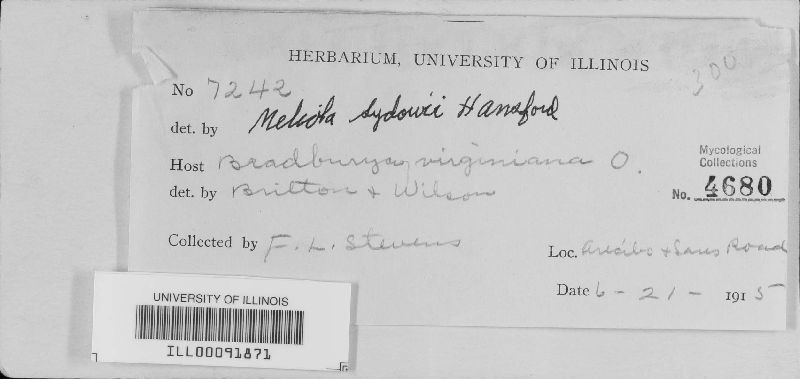 HERBARIUM, UNIVERSITY OF ILLINOIS
300
No 7242
det. by Meliola sydowii Hansford
Host Bradburya virginiana O.
det. by Britton + Wilson
Mycological
Collections
No. 4680
Collected by F. L. Stevens
Loc. Arecibo + Lares Road
Date 6 - 21 - 1915
UNIVERSITY OF ILLINOIS
ILL00091871